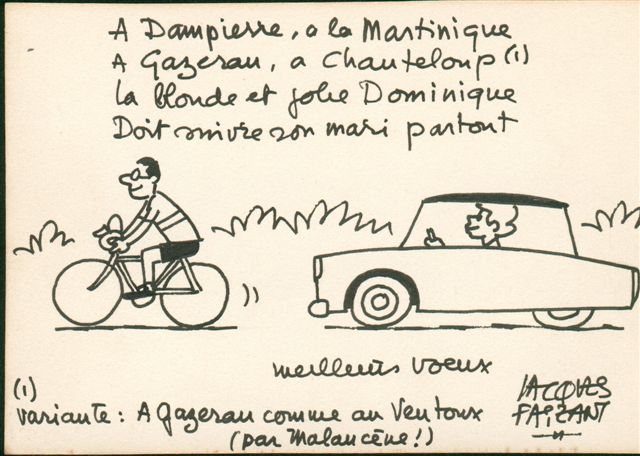 A Dampierre, a la Martinique
A Gazeran, a Chanteloup (1)
La blonde et jolie Dominique
Doit suivre son mari partout
meilleurs vœux
(1)
variante : A Gazeran comme au Ventoux
(par Malaucène !)
JACQUES
FAIZANT